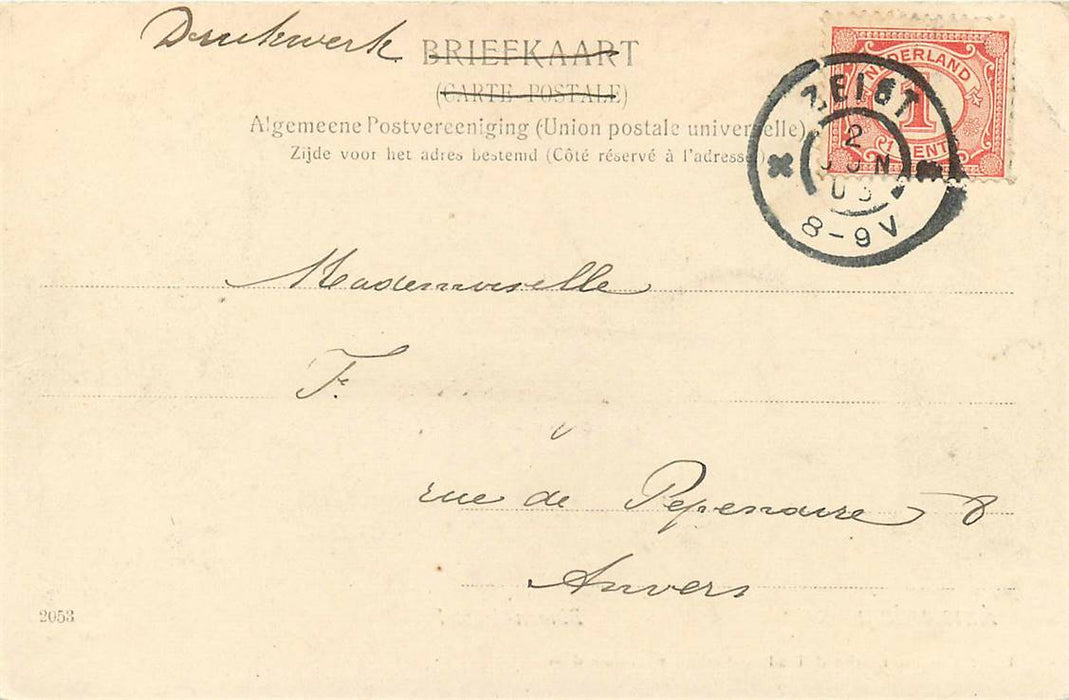 Drukwerk BRIEFKAART
(CARTE POSTALE)
Algemeene Postvereeniging (Union postale universelle)
Zijde voor het adres bestemd (Côté réservé à l'adresse.)
NEDERLAND
1
1 CENT
ZEIST
2
JUN
8-9V
Mademoiselle
F.
à
rue de Pepenaire 8
Anvers
2053